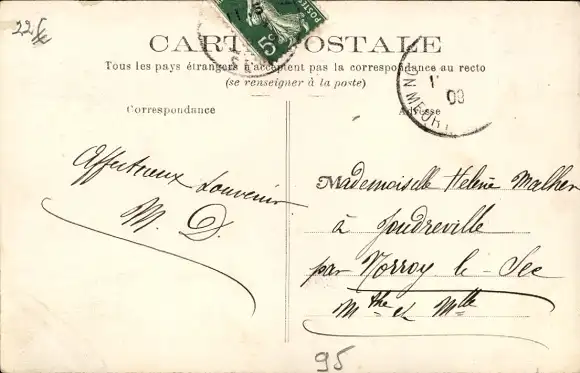 22
CARTE POSTALE
Tous les pays étrangers n'acceptent pas la correspondance au recto
(se renseigner à la poste)
Correspondance
Adresse
5c
POSTES
MEUR
08
Affectueux Souvenir
M. D.
Mademoiselle Helène
à Joudreville
par Norroy le-Sec
Mthe et Mlle
95